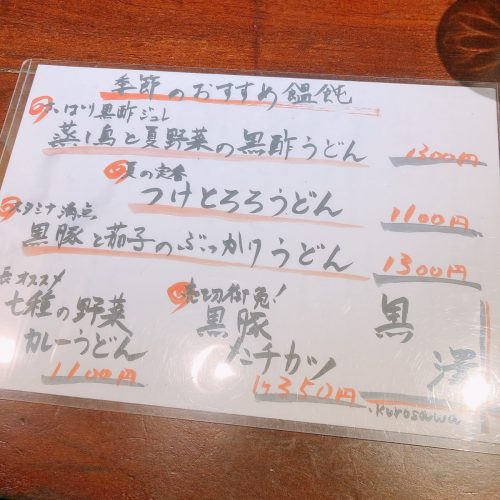 季節のおすすめ饂飩
さっぱり黒酢ジュレ
蒸し鳥と夏野菜の黒酢うどん 1300円
夏の定番
つけとろろうどん 1100円
スタミナ満点
黒豚と茄子のぶっかけうどん 1300円
長オススメ
七種の野菜
カレーうどん
1100円
売切御免!
黒豚
メンチカツ
1ケ350円
黒
澤
kurosawa